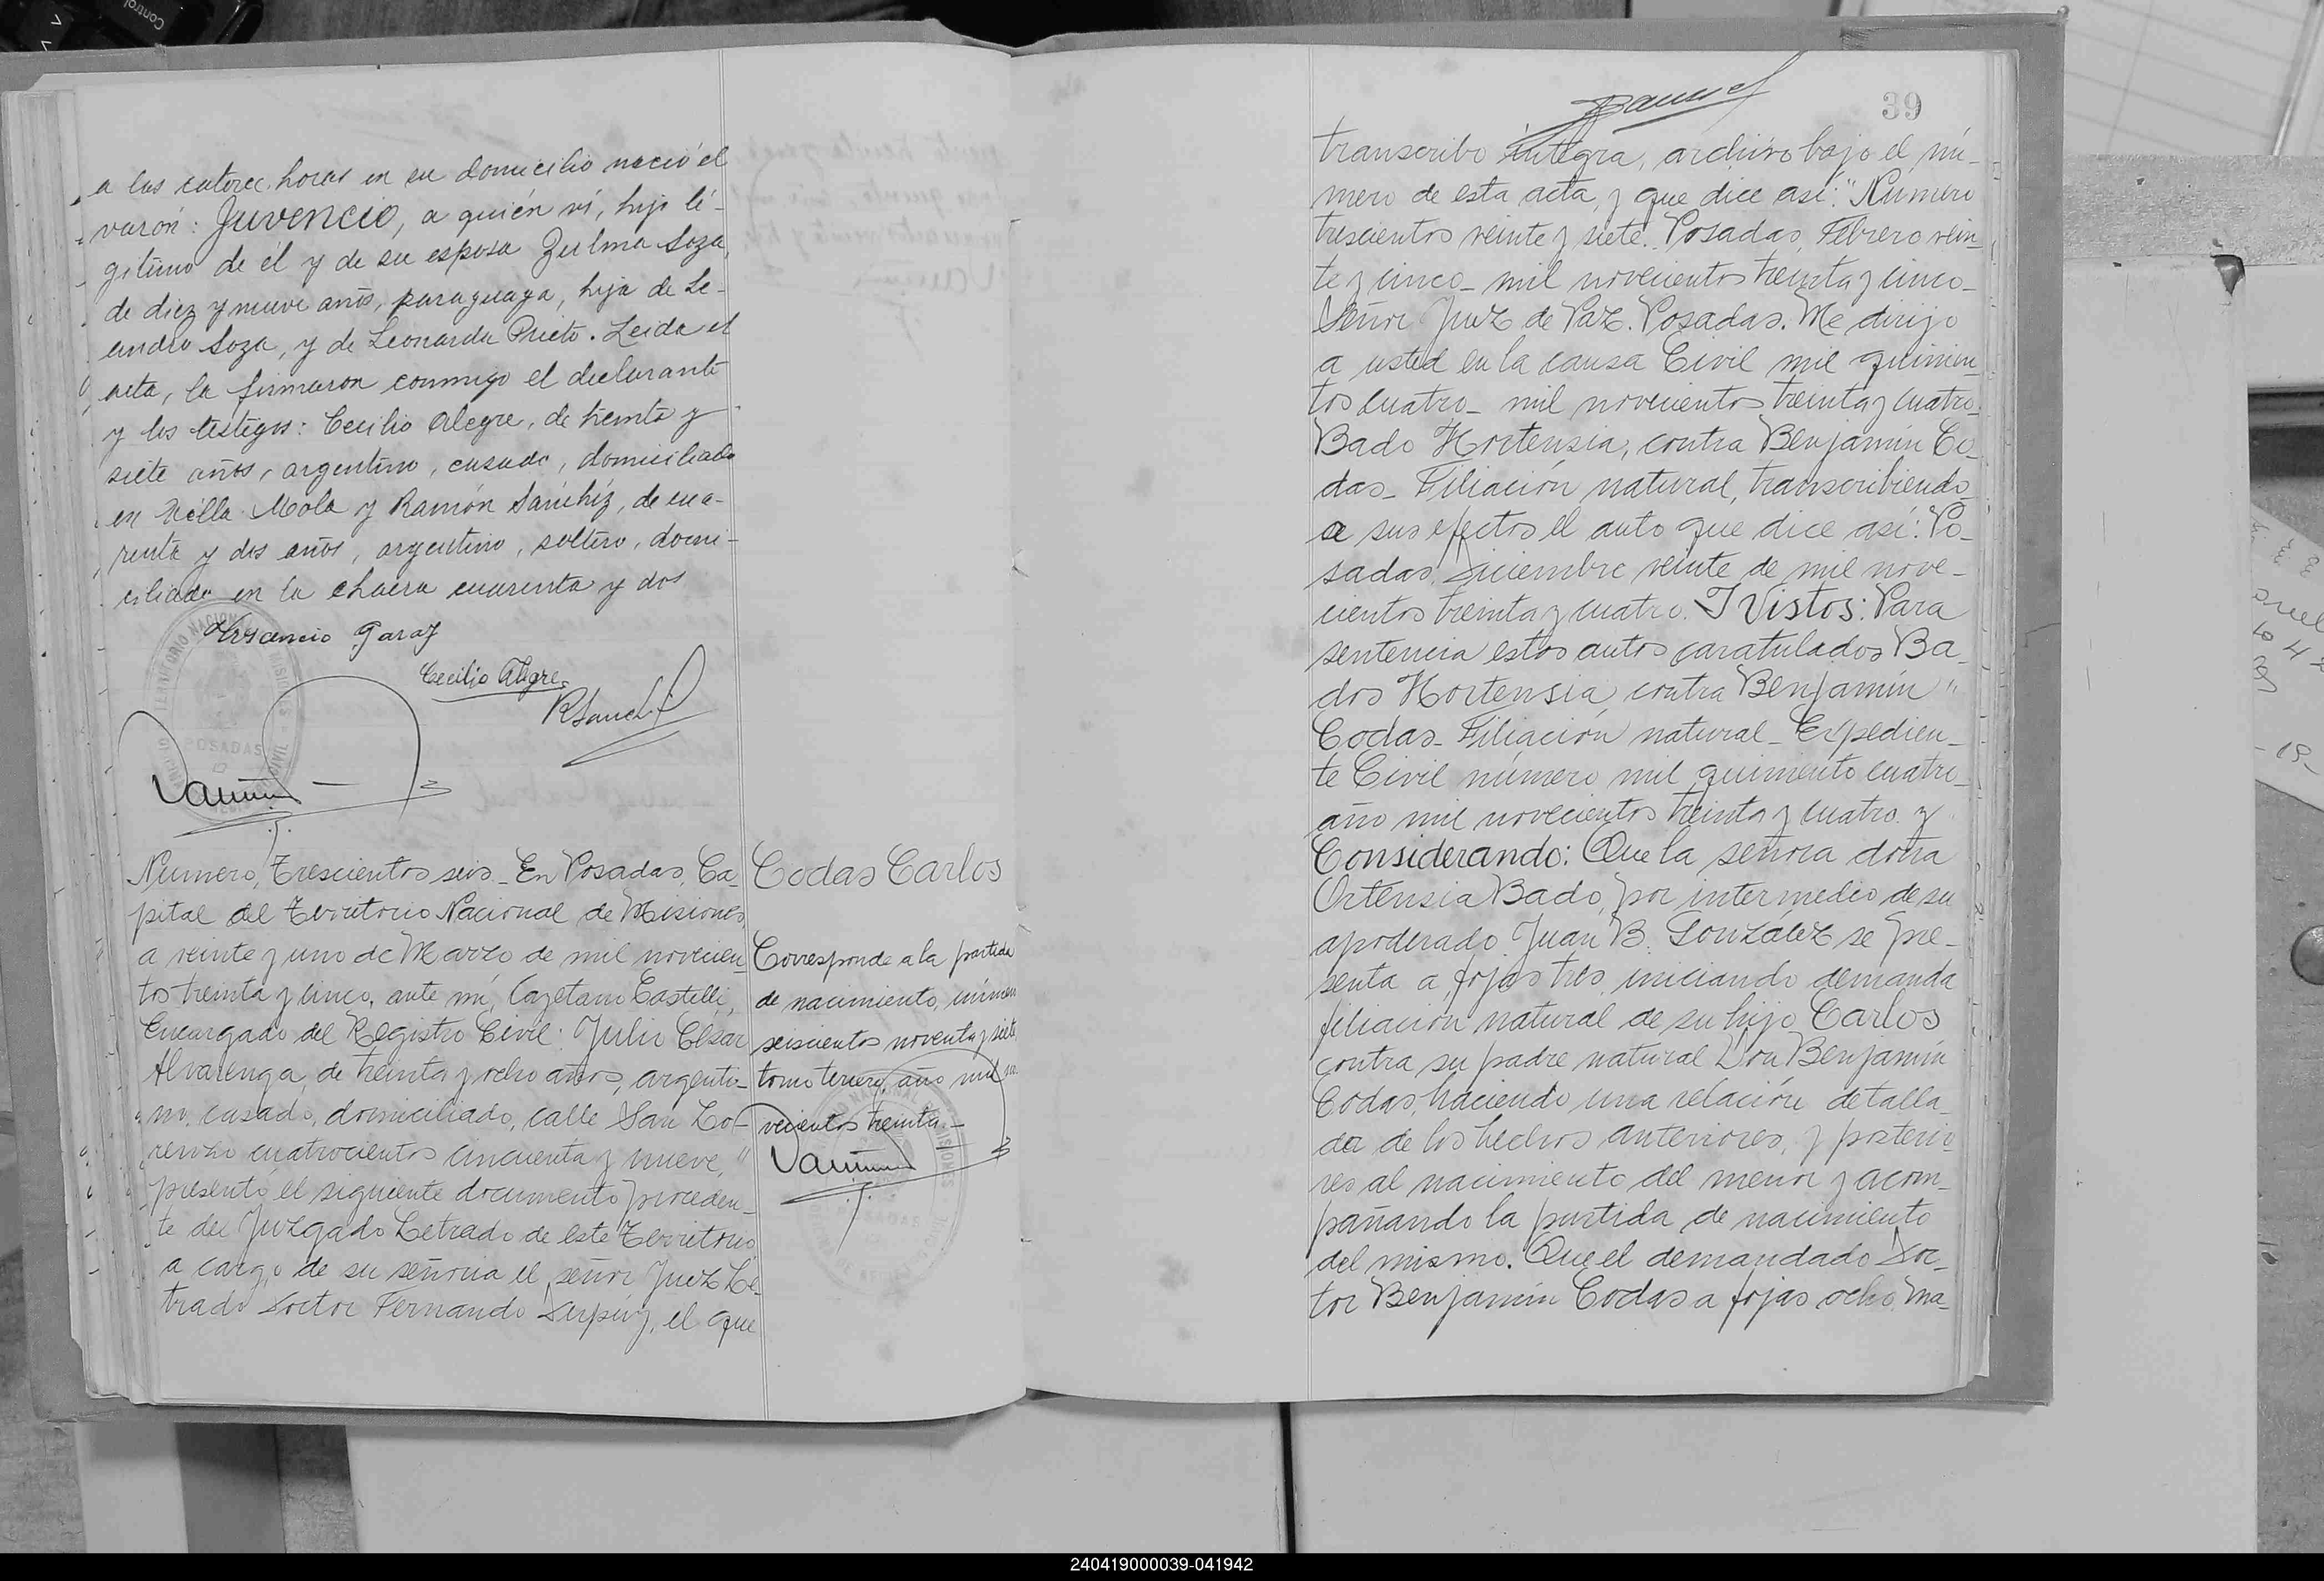 a las catorce horas en su domicilio nació el
varón: Juvencio, a quién ví, hijo lé-
gitimo de él y de su esposa Zulma Soza,
de diez y nueve años, paraguaya, hija de Le-
andro Soza, y de Leonarda Prieto. Leida el
acta, la firmaron conmigo el declarante
y los testigos: Cecilio Alegre, de treinta y
siete años, argentino, casado, domiciliado
en Villa Mola y Ramón Sánchiz, de cua-
renta y dos años, argentino, soltero, domi-
ciliado en la chacra cuarenta y dos
Garay
Cecilio Alegre
RSanch
POSADAS
Numero, Trescientos seis_ En Posadas, Ca-
pital del Territorio Nacional de Misiones,
a veinte y uno de Marzo de mil novecien-
tos treinta y cinco, ante mí, Cayetano Castelli,
Encargado del Registro Civil: Julio César
Alvarenga, de treinta y ocho años, argenti-
no, casado, domiciliado, calle San Lo-
renzo cuatrocientos cincuenta y nueve,"
presentó el siguiente documento proceden-
te del Juzgado Letrado de este Territorio
a cargo de su señoria el señor Juez Le-
trado Doctor Fernando, el que
Codas Carlos
Corresponde a la partida
de nacimiento, número
seiscientos noventa y siete,
tomo tercero, año mil no-
vecientos treinta.-
39
transcribo íntegra, archivo bajo el nú-
mero de esta acta, y que dice así: "Número
trescientos veinte y siete. Posadas, Febrero vein-
te y cinco_ mil novecientos treinta y cinco_
Señor Juez de Paz. Posadas. Me dirijo
a usted en la causa Civil mil quinien-
tos cuatro_ mil novecientos treinta y cuatro_
Bado Hortensia, contra Benjamín Co-
das_ Filiación natural, transcribiendo
a sus efectos el auto que dice así: Po-
sadas, Diciembre veinte de mil nove-
cientos treinta y cuatro. Y Vistos: Para
sentencia estos autos caratulados Ba-
dos Hortensia, contra Benjamín "
Codas_ Filiación natural_ Expedien-
te Civil número mil quiniento cuatro_
año mil novecientos treinta y cuatro. y
Considerando: Que la señora doña
Ortensia Bado, por intermedio de su
apoderado Juan B. González se pre-
senta a fojas tres iniciando demanda
filiación natural de su hijo Carlos
contra su padre natural Don Benjamín
Codas, haciendo una relación detalla-
da de los hechos anteriores, y posterio-
res al nacimiento del menor y acom-
pañando la partida de nacimiento
del mismo. Que el demandado Doc-
tor Benjamín Codas a fojas ocho ma-
240419000039-041942